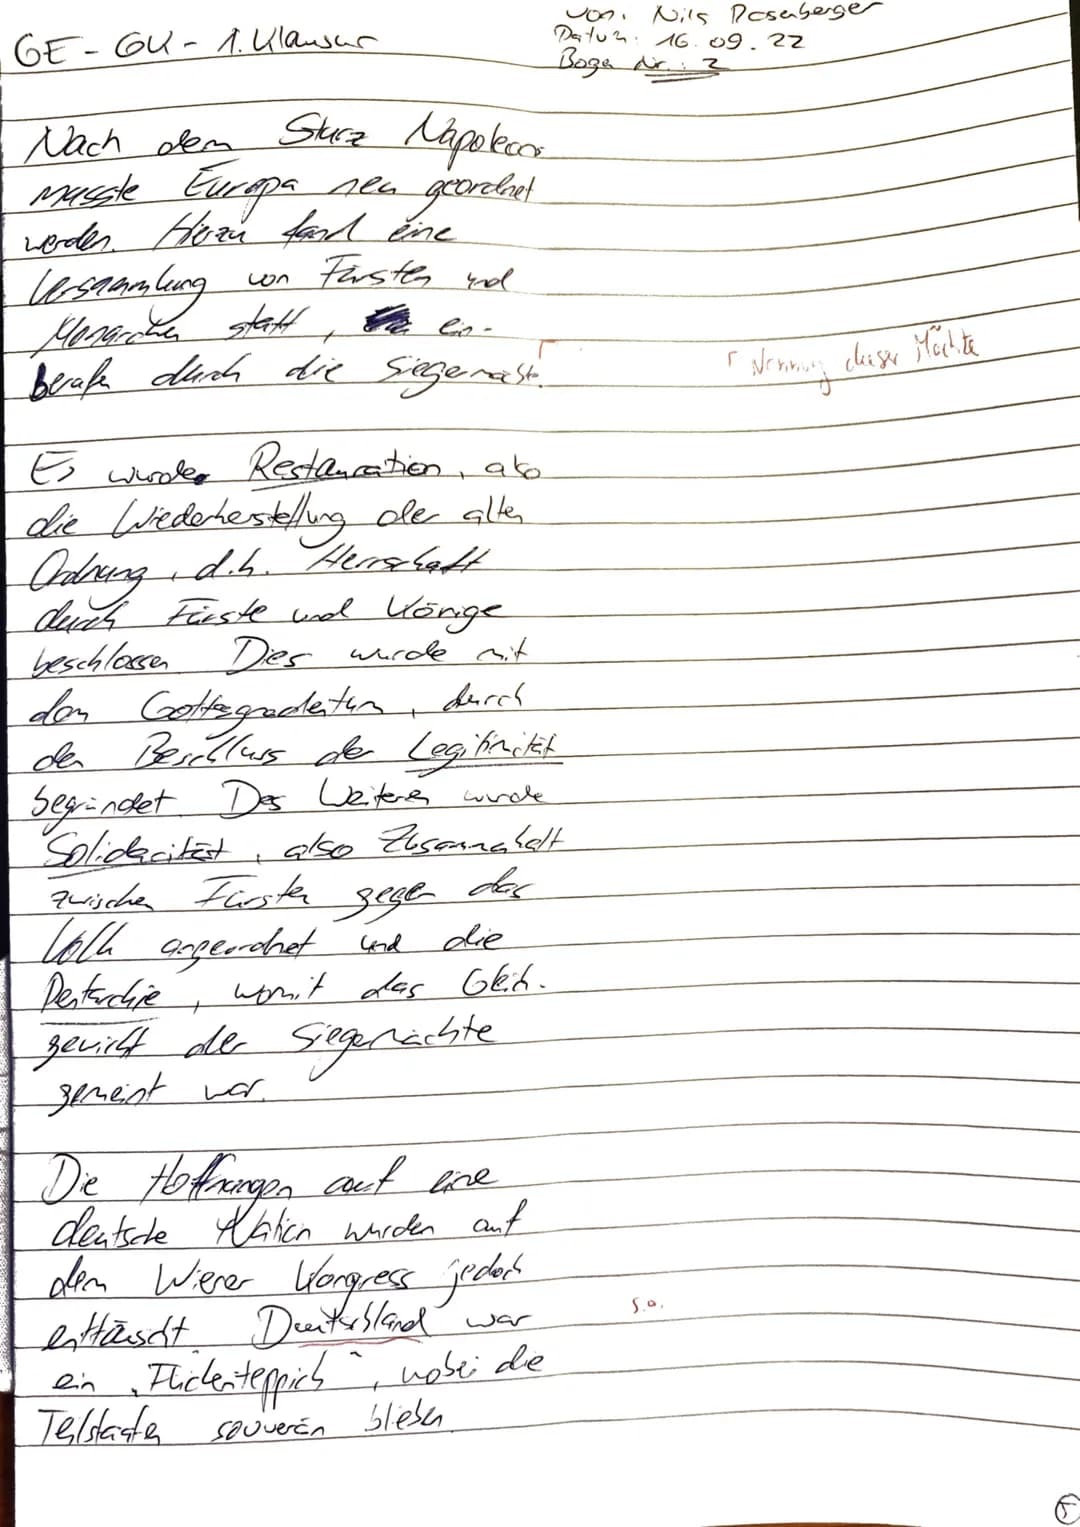 von: Nils Rosenberger
GE - GK - 1. Klausur
Datum: 16.09.22
Bogen Nr.: 2
Nach dem Sturz Napoleons
musste Europa neu geordnet
werden. Hierzu fand eine
Versammlung von Fürsten und
Monarchen statt, ein-
berufen durch die Siegermächte.
Γ Nennung dieser Mächte
Es wurde Restauration, also
die Wiederherstellung der alten
Ordnung, d.h. Herrschaft
durch Fürste und Könige
beschlossen. Dies wurde mit
dem Gottesgnadentum, durch
den Beschluss der Legitimität
begründet. Des Weiteren wurde
Solidarität, also Zusammenhalt
zwischen Fürsten gegen das
Volk angeordnet und die
Pentarchie, womit das Gleich-
gewicht der Siegermächte
gemeint war.
Die Hoffnungen auf eine
deutsche Nation wurden auf
dem Wiener Kongress jedoch
enttäuscht. Deutschland war
s.o.
ein „Flickenteppich“, wobei die
Teilstaaten souverän blieben
5